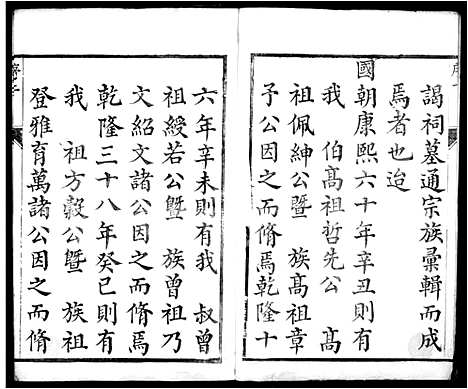 謁祠墓通宗族彙輯而成
焉者也迨
國朝康熙六十年辛丑則有
我　伯高祖哲先公　高
祖佩紳公暨　族高祖章
予公因之而脩焉乾隆十
六年辛未則有我　叔曾
祖綬若公暨　族曾祖乃
文紹文諸公因之而脩焉
乾隆三十八年癸巳則有
我　祖方穀公暨　族祖
登雅育萬諸公因之而脩